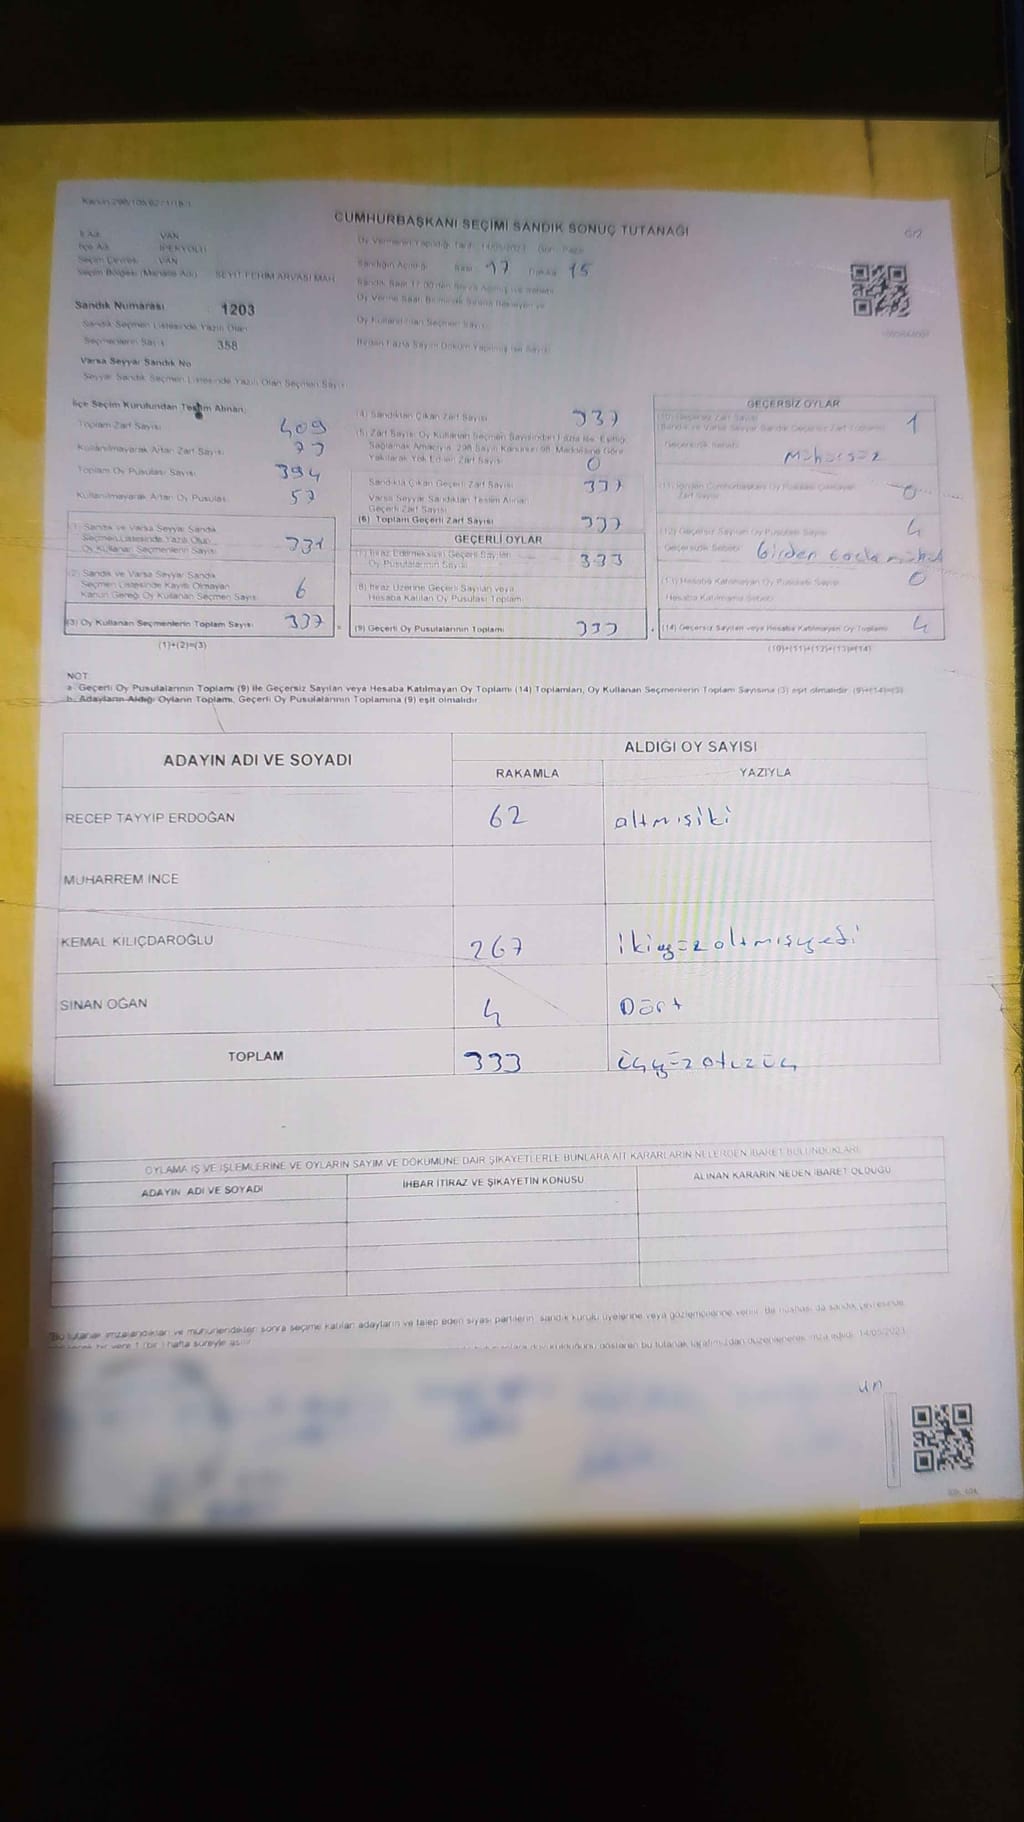 Kanun 298/105
CUMHURBAŞKANI SEÇİMİ SANDIK SONUÇ TUTANAĞI
İl Adı VAN
İlçe Adı İPEKYOLU
Seçim Çevresi VAN
Seçim Bölgesi (Mahalle Adı) SEYİT FEHİM ARVASİ MAH
Sandık Numarası 1203
Sandık Seçmen Listesinde Yazılı Olan
Seçmenlerin Sayısı 358
Varsa Seyyar Sandık No
Seyyar Sandık Seçmen Listesinde Yazılı Olan Seçmen Sayısı
Oy Vermenin Yapıldığı Tarih 14/05/2023 Gün Pazar
Sandığın Açıldığı Saat 17 Dakika 15
Oy Kullandırılan Seçmen Sayısı
İlçe Seçim Kurulundan Teslim Alınan;
Toplam Zarf Sayısı 409
Kullanılmayarak Artan Zarf Sayısı
Toplam Oy Pusulası Sayısı 394
Kullanılmayarak Artan Oy Pusulası 57
(1) Sandık ve Varsa Seyyar Sandık
Seçmen Listesinde Yazılı Olup
Oy Kullanan Seçmenlerin Sayısı 331
(2) Sandık ve Varsa Seyyar Sandık
Seçmen Listesinde Kayıtlı Olmayan
Kanun Gereği Oy Kullanan Seçmen Sayısı 6
(3) Oy Kullanan Seçmenlerin Toplam Sayısı 337
(1)+(2)=(3)
(4) Sandıktan Çıkan Zarf Sayısı 337
(5) Zarf Sayısı Oy Kullanan Seçmen Sayısından Fazla ise, Eşitliği
Sağlamak Amacıyla, 298 Sayılı Kanunun 98. Maddesine Göre
Yakılarak Yok Edilen Zarf Sayısı 0
Sandıkta Çıkan Geçerli Zarf Sayısı 337
Varsa Seyyar Sandıktan Teslim Alınan
Geçerli Zarf Sayısı
(6) Toplam Geçerli Zarf Sayısı 337
GEÇERLİ OYLAR
(7) İtiraz Edilmeksizin Geçerli Sayılan
Oy Pusulalarının Sayısı 333
(8) İtiraz Üzerine Geçerli Sayılan veya
Hesaba Katılan Oy Pusulası Toplamı
(9) Geçerli Oy Pusulalarının Toplamı 333
GEÇERSİZ OYLAR
(10) Geçersiz Zarf Sayısı 1
(Sandık ve Varsa Seyyar Sandık Geçersiz Zarf Toplamı)
Geçersizlik Sebebi Mühürsüz
0
(12) Geçersiz Sayılan Oy Pusulası Sayısı 4
Geçersizlik Sebebi birden
(13) Hesaba Katılmayan Oy Pusulası Sayısı 0
Hesaba Katılmama Sebebi
(14) Geçersiz Sayılan veya Hesaba Katılmayan Oy Toplamı 4
(10)+(11)+(12)+(13)=(14)
NOT
a. Geçerli Oy Pusulalarının Toplamı (9) ile Geçersiz Sayılan veya Hesaba Katılmayan Oy Toplamı (14) Toplamları, Oy Kullanan Seçmenlerin Toplam Sayısına (3) eşit olmalıdır. (9)+(14)=(3)
b. Adayların Aldığı Oyların Toplamı, Geçerli Oy Pusulalarının Toplamına (9) eşit olmalıdır.
ADAYIN ADI VE SOYADI
ALDIĞI OY SAYISI
RAKAMLA YAZIYLA
RECEP TAYYİP ERDOĞAN 62 altmışiki
MUHARREM İNCE
KEMAL KILIÇDAROĞLU 267 ikiyüzaltmışyedi
SİNAN OĞAN 4 Dört
TOPLAM 333 üçyüzotuzüç
OYLAMA İŞ VE İŞLEMLERİNE VE OYLARIN SAYIM VE DÖKÜMÜNE DAİR ŞİKAYETLERLE BUNLARA AİT KARARLARIN NELERDEN İBARET BULUNDUKLARI
ADAYIN ADI VE SOYADI İHBAR İTİRAZ VE ŞİKAYETİN KONUSU ALINAN KARARIN NEDEN İBARET OLDUĞU
"Bu tutanak imzalandıktan ve mühürlendikten sonra seçime katılan adayların ve talep eden siyasi partilerin, sandık kurulu üyelerine veya gözlemcilerine verilir. Bir nüshası da sandık çevresinde
bir yere 1 (bir) hafta süreyle asılır. gösteren bu tutanak tarafımızdan düzenlenerek imza edildi. 14/05/2023